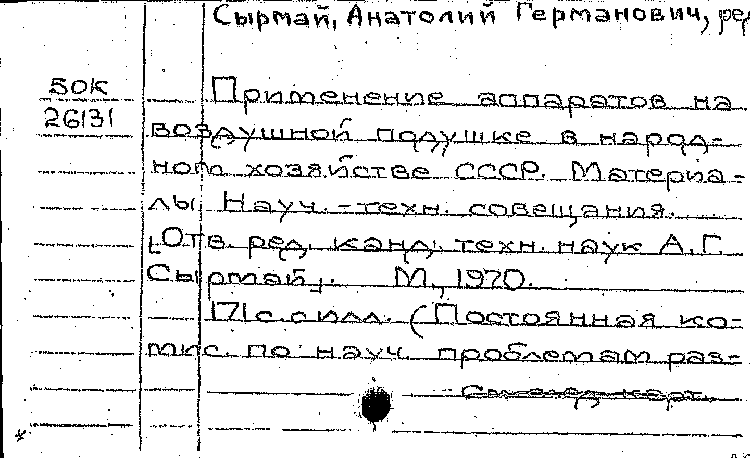 Сырмай, Анатолий Германович, ред
50К
26131
Применение аппаратов на
воздушной подушке в народ-
ном хозяйстве СССР. Материа-
лы Науч.-техн. совещания.
[Отв. ред. канд. техн. наук А.Г.
Сырмай]. М., 1970.
171 с. с илл. (Постоянная ко-
мис. по науч. проблемам раз-
См. след. карт.